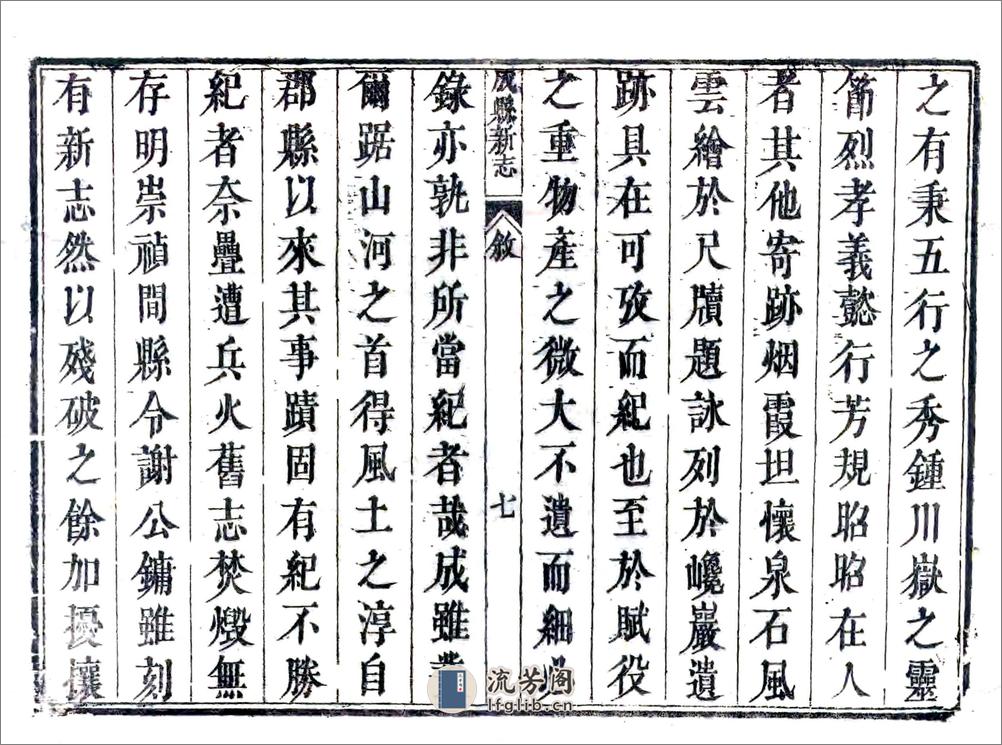 之有秉五行之秀鍾川嶽之靈
節烈孝義懿行芳規昭昭在人
者其他寄跡烟霞坦懷泉石風
雲繪於尺牘題詠列於巉巖遺
跡具在可攷而紀也至於賦役
之重物產之微大不遺而細
成縣新志 敘 七
錄亦孰非所當紀者哉成雖
爾踞山河之首得風土之淳自
郡縣以來其事蹟固有紀不勝
紀者奈疊遭兵火舊志焚燬無
存明崇禎間縣令謝公鏞雖刻
有新志然以殘破之餘加擾攘
流芳阁
lfglib.cn